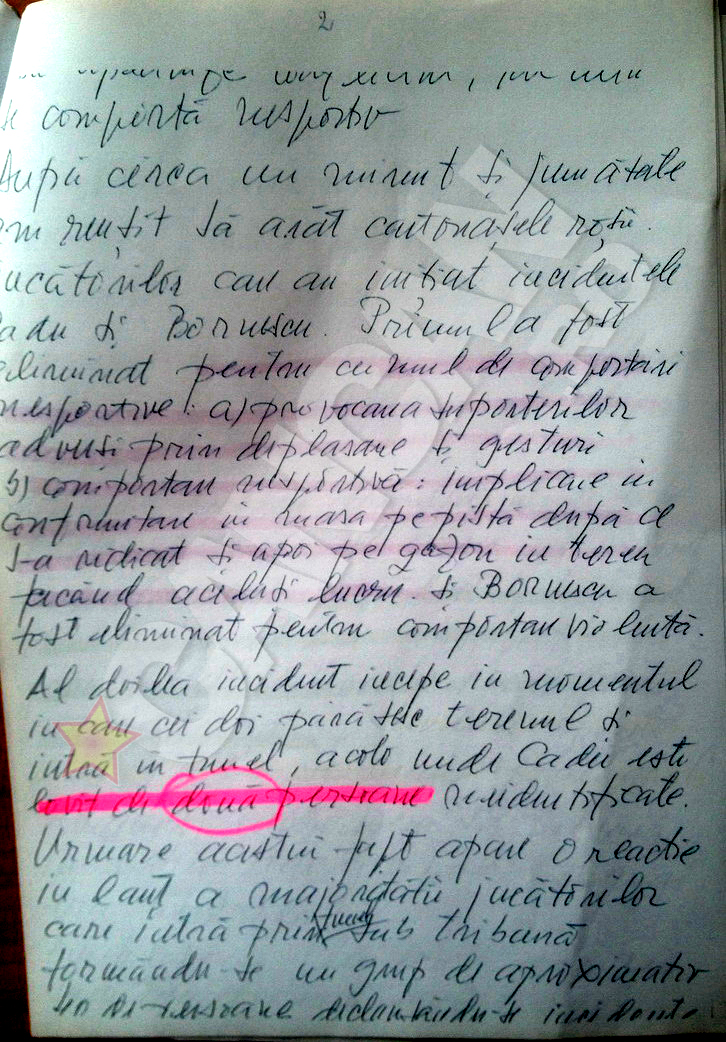 2
se comportă nesportiv
După circa un minut și jumătate
am reușit să arăt cartonașele roșii
jucătorilor care au inițiat incidentele
Cadu și Boruescu. Primul a fost
eliminat pentru cumul de comportări
nesportive: a) provocarea suporterilor
adverși prin deplasare și gesturi
b) comportare nesportivă: implicare în
confruntare în masa pe pistă după ce
s-a ridicat și apoi pe gazon în teren
făcând același lucru. și Boruescu a
fost eliminat pentru comportare violentă.
Al doilea incident începe în momentul
în care cei doi părăsesc terenul și
intră în tunel, acolo unde Cadu este
lovit de două persoane neidentificate.
Urmare acestui fapt apare o reacție
în lanț a majorității jucătorilor
care intră prin tunel sub tribună
formându-se un grup de aproximativ
40 de persoane declanșându-se incidente
CANCAN
.RO